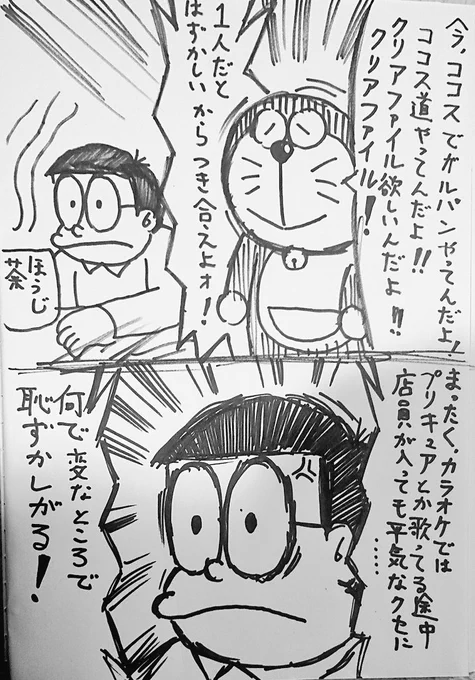 今、ココスでガルパンやってんだよ!
ココス道やってんだよ!!
クリアファイル欲しいんだよ!!
クリアファイル!
1人だと
はずかしいからつき合えよォ!
ほうじ
茶
まったく、カラオケでは
プリキュアとか歌ってる途中
店員が入っても平気なクセに
……
何で変なところで
恥ずかしがる!